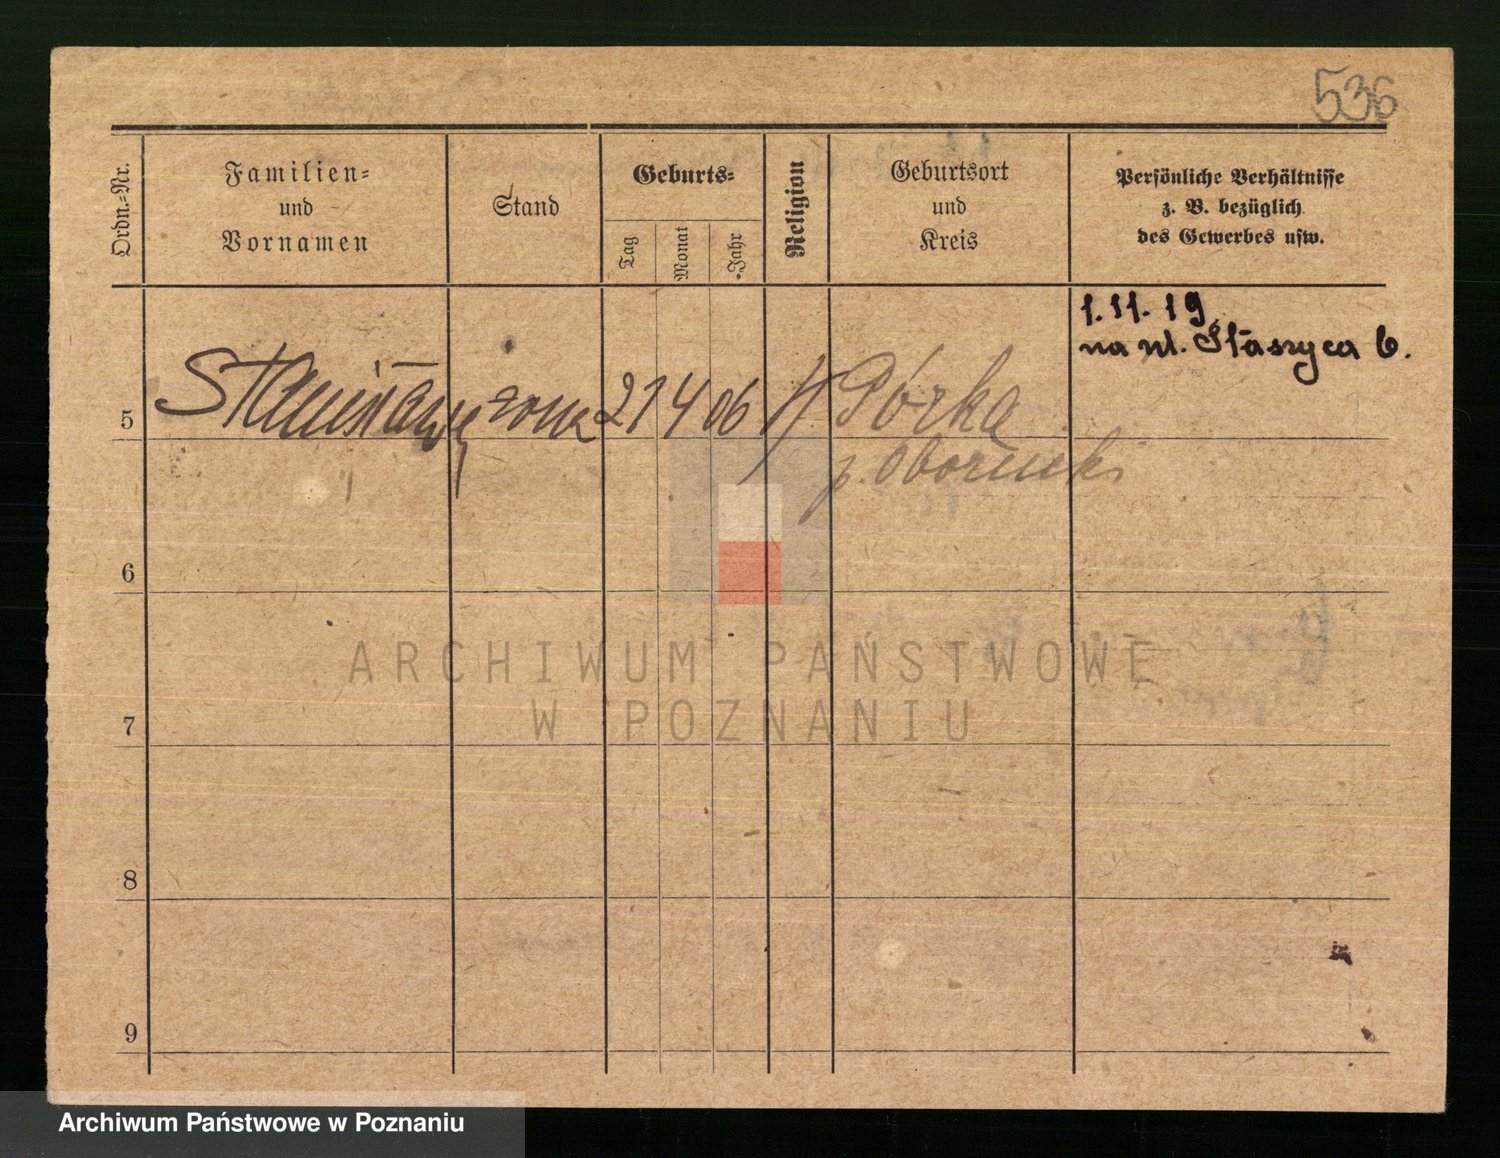 536
Ordn.-Nr.
Familien-
und
Vornamen
Stand
Geburts-
Tag
Monat
Jahr
Religion
Geburtsort
und
Kreis
Persönliche Verhältnisse
z. B. bezüglich
des Gewerbes usw.
1. 11. 19
na ul. Staszyca 6.
5
21 4 06
p. Oborniki
6
7
8
9
ARCHIWUM PAŃSTWOWE
W POZNANIU
Archiwum Państwowe w Poznaniu